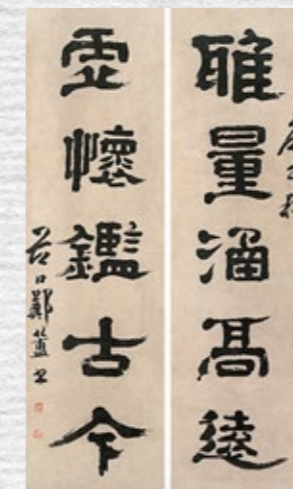 雅量涵髙遠
虛懷鑑古今
谷口鄭簠書